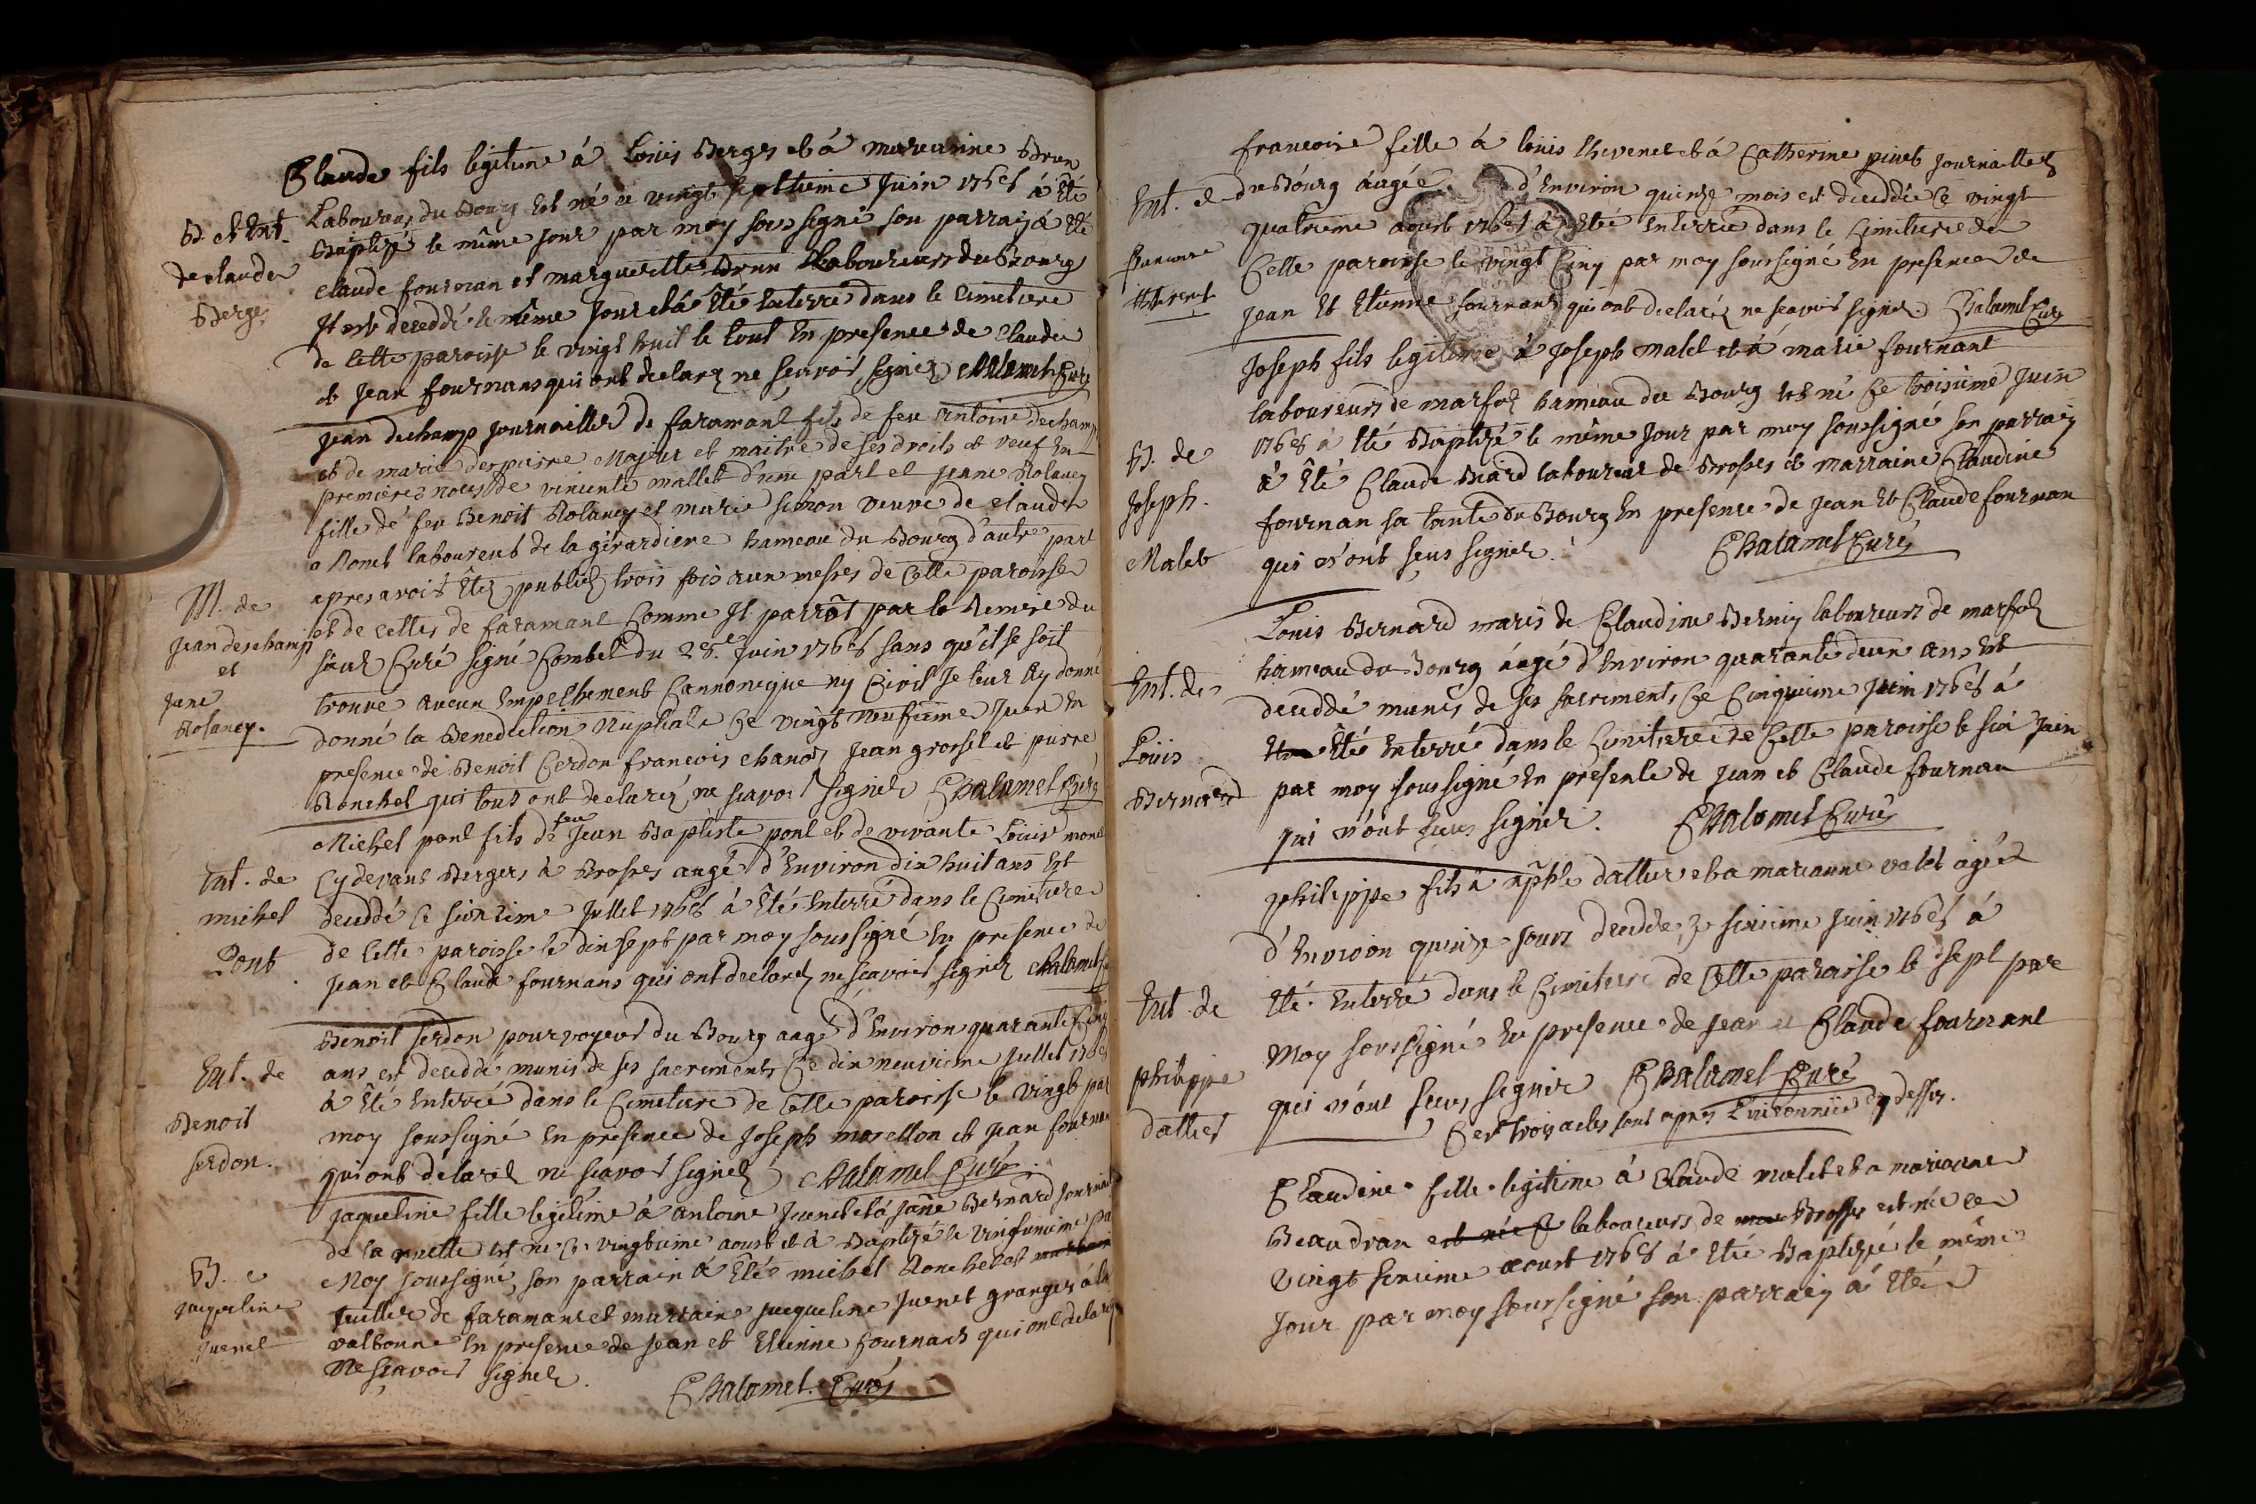 Claude fils legitime à Loüis Berger et à marianne Brun
B. et Ent. Laboureurs du Bourg est né ce vingt septieme Juin 1768 à Eté
Baptizé le même jour par moy soussigné son parrain à Eté
de claude claude fournan et marguerite Brun Laboureurs du Bourg
Berger Il est deceddé le même jour et à Eté Enterré dans le cimetiere
de Cette paroisse le vingt huit le tout En presence de Claude
et Jean fournans qui ont declaré ne scavoir signer Chalamel Curé
Jean dechamp Journaillier de faramant fils de feu antoine dechamp
et de marie despierre Majeur et maitre de ses droits et veuf En
premieres noces de vincente mallet d'une part et Jeane Rolancy
fille de feu Benoit Rolancy et marie simon veuve de claude
Ronet laboureur de la girardiere hameau du Bourg d'autre part
apres avoir Etez publiez trois fois aux messes de cette paroisse
M. de et de celles de faramant Comme Il parrôt par la Remise du
Jean deschamp sieur Curé signé Combet du 28.e Juin 1768 sans qu'il se soit
et trouvé aucun Empechement Cannonique ny Civil Je leur Ay donné
Jane donné la Benediction Nuptiale ce vingt neufieme Juin En
Rolancy. presence de Benoit Cerdon francois chanos Jean grossel et pierre
Ronchel qui tous ont declaréz ne scavoir signer Chalamel Curé
Michel pont fils de feu Jean Baptiste pont et de vivante Loüise
Ent. de Cy devant Bergers à Brosses augé d'Environ dix huit ans Est
michel deceddé ce seizieme Jullet 1768 à Eté Enterré dans le Cimetiere
Pont de Cette paroisse le dix sept par moy soussigné En presence de
Jean et Claude fournans qui ont declaréz ne scavoir signer Chalamel
Benoit Serdon pourvoyeur du Bourg augé d'Environ quarante Cinq
Ent. de ans est deceddé munis de ses sacrements Ce dix neuvieme Jullet 1768
à Eté Enterré dans le Cimetiere de Cette paroisse le vingt par
Benoit moy soussigné En presence de Joseph morellon et Jean fournan
serdon. qui ont declaréz ne scavoir signer Chalamel Curé
Jaqueline fille legitime à antoine Juenet et à Jane Bernard
de la ruette est né Ce vingtieme aoust et à Baptizé le vingtunieme
B. Moy soussigné, son parrain à Eté michel Ronchel et
Jacqueline de faramans et marraine Jacqueline Juenet granger à la
Juenet valbonne En presence de Jean et Etienne fournans qui ont declaré
Ne scavoir signer. Chalamel Curé
francoise fille à loüis thevenet et à Catherine pinet Journalliers
Ent. de du Bourg augée d'Environ quinze mois est deceddée ce vingt
quatrieme aoust 1768 à Eté Enterrée dans le Cimetiere de
francoise Cette paroisse le vingt Cinq par moy soussigné En presence de
thevenet Jean Et Etienne fournans qui ont declaréz ne scavoir signer Chalamel Curé
Joseph fils legitime à Joseph malet et à marie fournant
laboureurs de marfoz hameau du Bourg Est né Ce troisieme Juin
B. de 1768 à Eté Baptizé le même Jour par moy soussigné son parrain
Joseph. à Eté Claude Biard laboureur de Brosses et marraine Claudine
fournan sa tante du Bourg En presence de Jean Et Claude fournan
Malet qui n'ont seus signer. Chalamel Curé
Louis Bernard maris de Claudine Berniy laboureurs de marfoz
Ent. de hameau du Bourg augé d'Environ quarante deux ans Est
deceddé munis de ses sacrements Ce Cinquieme Juin 1768 à
Loüis Eté Enterré dans le Cimetiere de Cette paroisse le six Juin
Bernard par moy soussigné En presence de Jean et Claude fournan
qui n'ont seus signer. Chalamel Curé
philippe fils à dallier et a marianne valet agé
d'Environ quinze Jours deceddé ce sixieme Juin 1768 à
Ent. de Eté Enterré dans le Cimetiere de Cette paroisse le sept par
moy soussigné En presence de Jean et Claude fournant
philippe qui n'ont seus signer Chalamel Curé
dallier Ces trois actes sont apres dessus.
Claudine fille legitime à Claude malet et a marianne
Beaudran laboureurs de Brosses est née ce
vingt sixieme aoust 1768 à Eté Baptizée le même
Jour par moy soussigné son parrain à Eté